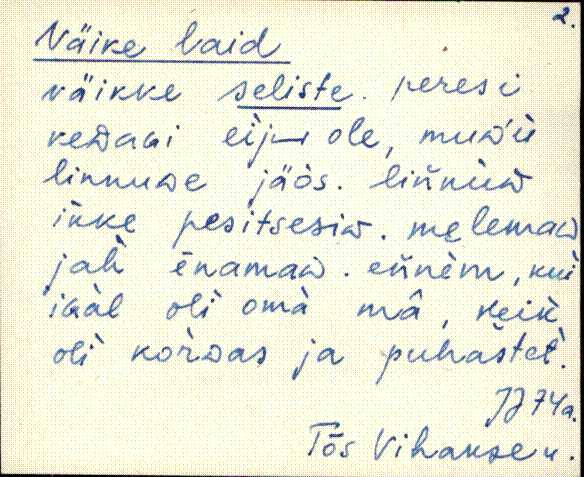 2.
Väike laid
väikke seliste. peresi
keDaGi ei ole, muD'ù
linnuDe jäòs. liǹnùD
ìkke pesitsesiD. meleman
jah ènamaD. eǹnèm, kui
iGàl oli omà mâ, keik
oli kòrDas ja puhàštet.
JJ 74a.
Tõs Vihakse u.